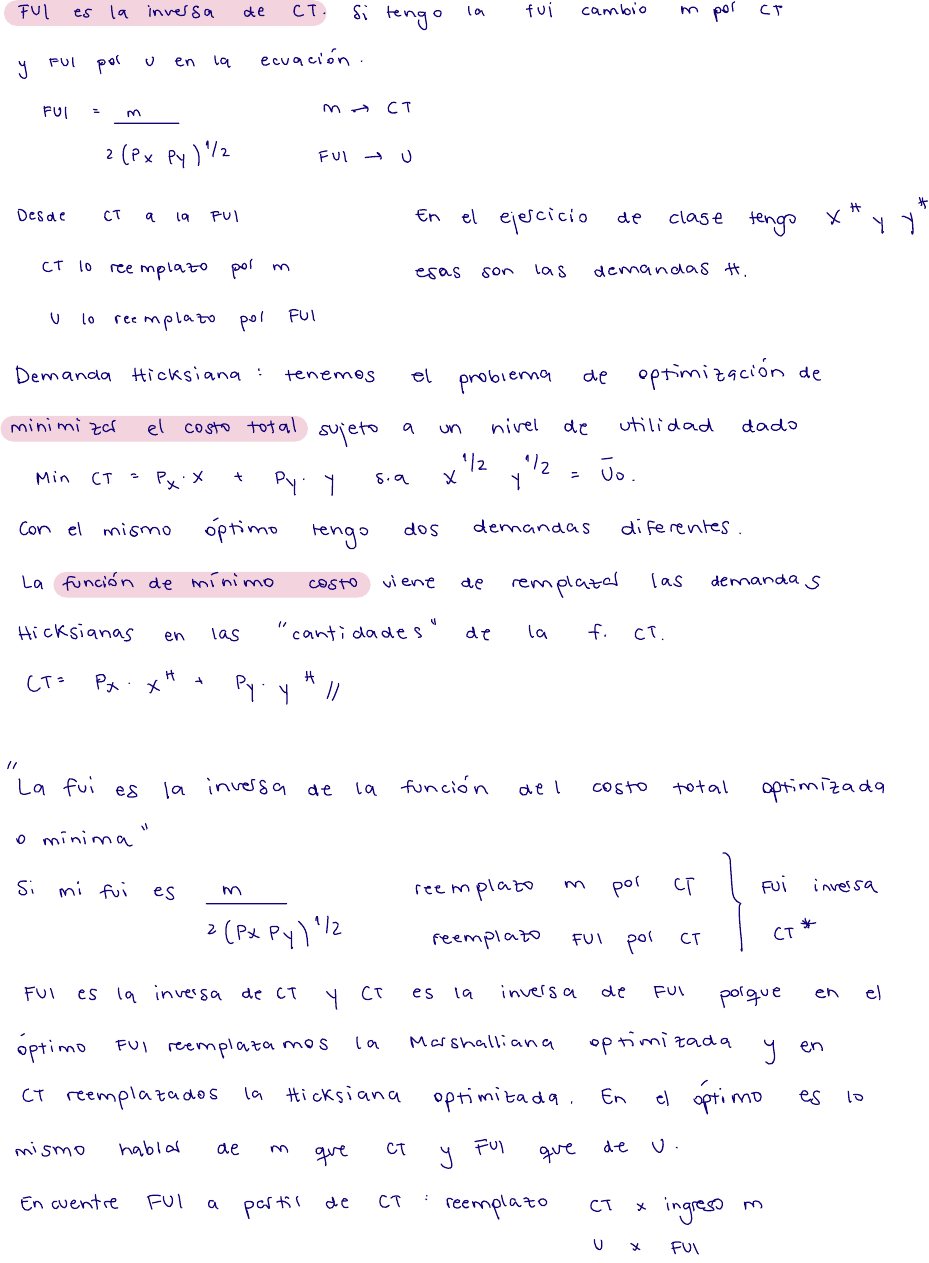 FUI es la inversa de CT. Si tengo la fui cambio m por CT
y FUI por U en la ecuación.
FUI = m m → CT
2 (Px Py)^1/2 FUI → U
Desde CT a la FUI En el ejercicio de clase tengo x^H y y^H
CT lo reemplazo por m esas son las demandas H.
U lo reemplazo por FUI
Demanda Hicksiana : tenemos el problema de optimización de
minimizar el costo total sujeto a un nivel de utilidad dado
Min CT = Px · x + Py · y s.a x^1/2 y^1/2 = Ūo.
Con el mismo óptimo tengo dos demandas diferentes.
La función de mínimo costo viene de remplazar las demandas
Hicksianas en las "cantidades" de la f. CT.
CT= Px · x^H + Py · y^H //
"La fui es la inversa de la función del costo total optimizada
o mínima"
Si mi fui es m reemplazo m por CT } FUI inversa
2 (Px Py)^1/2 reemplazo FUI por CT CT*
FUI es la inversa de CT y CT es la inversa de FUI porque en el
óptimo FUI reemplazamos la Marshalliana optimizada y en
CT reemplazados la Hicksiana optimizada. En el óptimo es lo
mismo hablar de m que CT y FUI que de U.
Encuentre FUI a partir de CT : reemplazo CT x ingreso m
U x FUI